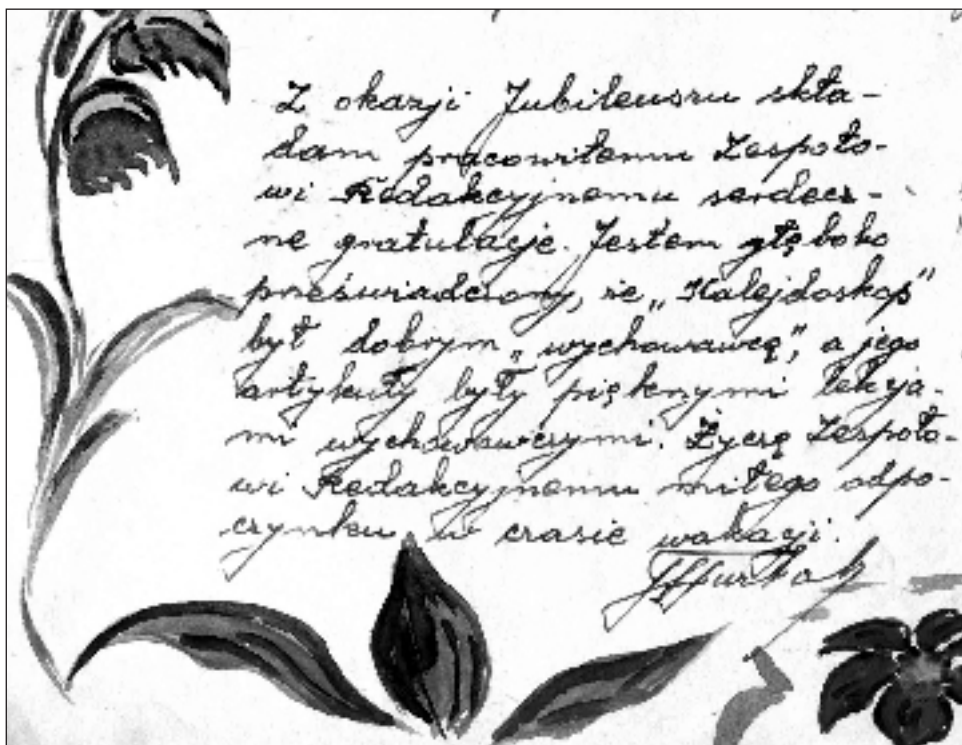 Z okazji Jubileuszu skła-
dam pracowitemu Zespoło-
wi Redakcyjnemu serdecz-
ne gratulacje. Jestem głęboko
przeświadczony, że „Kalejdoskop”
był dobrym „wychowawcą”, a jego
artykuły były pięknymi lekcja-
mi wychowawczymi. Życzę Zespoło-
wi Redakcyjnemu miłego odpo-
czynku w czasie wakacji.